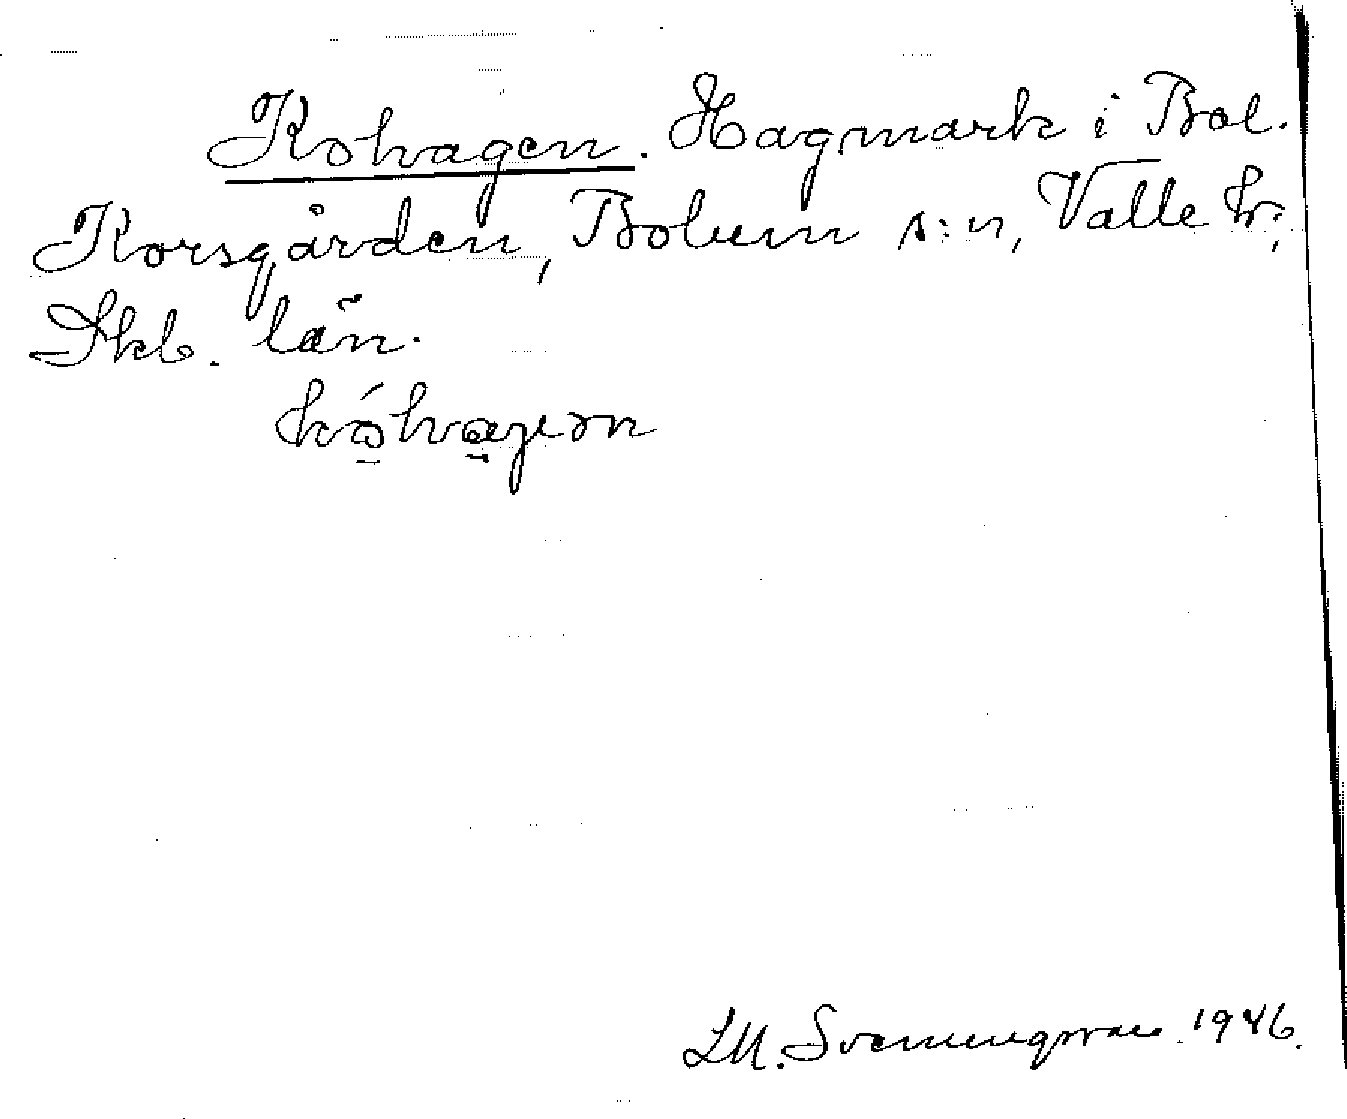 Kohagen. Hagmark i Bol.
Korsgården, Bolum s:n, Valle hr;
Skb. län.
kóhagen
LM. Svenungsson 1946.